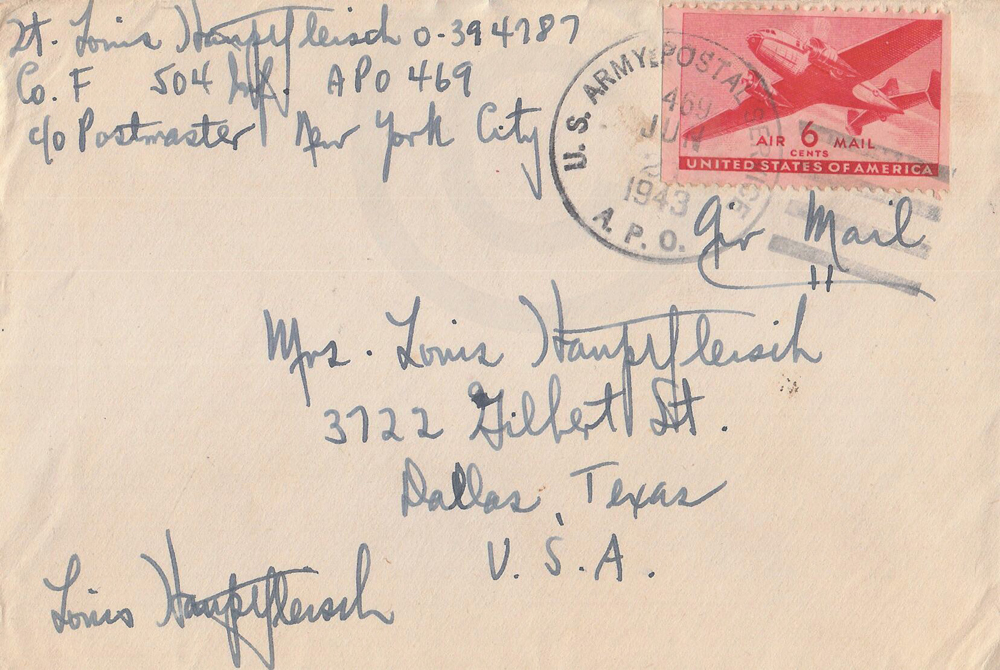 Lt. Louis Hauptfleisch O-394787
Co. F 504 Inf. APO 469
c/o Postmaster New York City
U. S. ARMY POSTAL SERVICE
469
JUN
1943
A. P. O.
AIR 6 MAIL
CENTS
UNITED STATES OF AMERICA
Air Mail
Mrs. Louis Hauptfleisch
3722 Gilbert St.
Dallas, Texas
U. S. A.
Louis Hauptfleisch